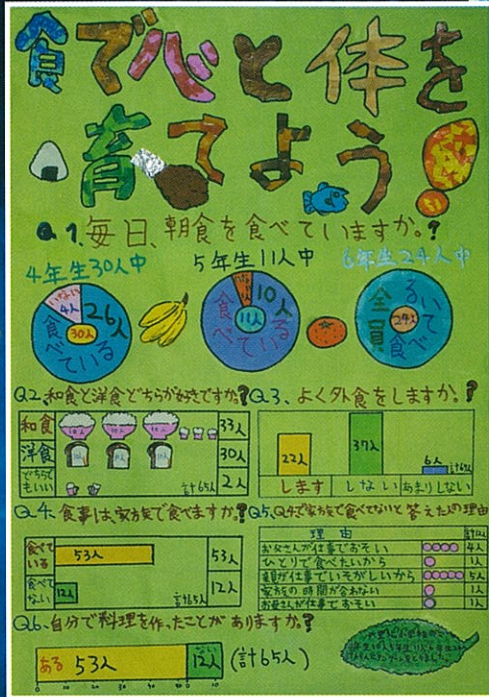 食で心と体を
育てよう!
Q1、毎日、朝食を食べていますか。?
4年生30人中
5年生11人中
6年生24人中
いない
4人
26人
30人
食べている
10人
11人
食べている
全員
24人
食べている
Q2、和食と洋食どちらが好きですか。?
和食
10人
10人
10人
33人
洋食
30人
どちらでもいい
計65人
2人
Q3、よく外食をしますか。?
22人
37人
6人
計65人
します
しない
あまりしない
Q4、食事は、家族で食べますか。?
食べている
53人
53人
食べてない
12人
計65人
12人
Q5、Q4で家族で食べてないと答えた人の理由
理由
計12人
お父さんが仕事でおそい
4人
ひとりで食べたいから
1人
親が仕事でいそがしいから
5人
家族の時間が合わない
1人
お母さんが仕事でおそい
1人
Q6、自分で料理を作ったことがありますか。?
ある
53人
12人
(計65人)